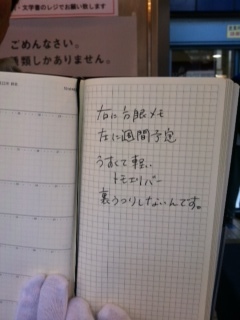 ・文学者のレジでお願い致します
ごめんなさい。
種類しかありません。
右に方眼メモ
左に週間予定
うすくて軽い
トモエリバー
裏うつりしないんです。